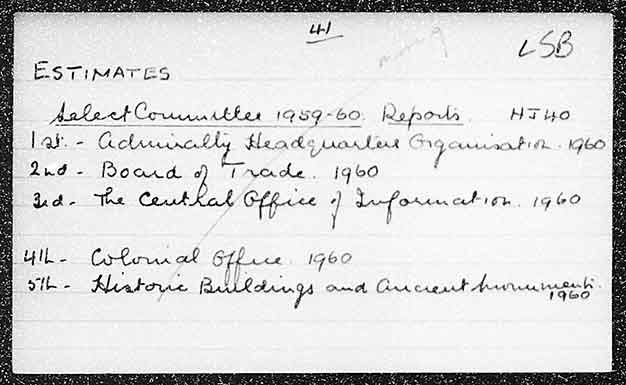 41
LSB
ESTIMATES
Select Committee 1959-60. Reports. HJ40
1st. - Admiralty Headquarters Organisation. 1960
2nd - Board of Trade. 1960
3rd. - The Central Office of Information. 1960
4th - Colonial Office. 1960
5th - Historic Buildings and Ancient Monuments.
1960